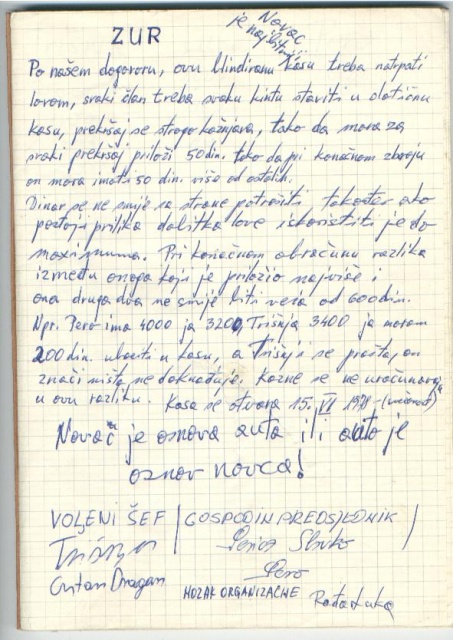 ZUR
Novac
je najbitniji
Po našem dogovoru, ovu blindiranu kasu treba natrpati
lovom, svaki član treba svaku kintu staviti u dotičnu
kasu, prekršaj se strogo kažnjava, tako da mora za
svaki prekršaj priloži 50 din. tako da pri konačnom zbroju
on mora imati 50 din. više od ostalih.
Dinar se ne smije sa strane potrošiti, također ako
postoji prilika dobitka love iskoristiti je do
maximuma. Pri konačnom obračunu razlika
između onoga koji je priložio najviše i
ona druga dva ne smije biti veća od 600 din.
Npr. Pero ima 4000 ja 3200, Trišnja 3400 ja moram
200 din. ubaciti u kasu, a Trišnji se prašta, on
znači ništa ne doknađuje. Kazne se ne uračunavaju
u ovu razliku. Kasa se otvara 15. VI 1978-
Novac je osnova auta ili auto je
osnov novca!
VOLJENI ŠEF GOSPODIN PREDSJEDNIK
Slavko
Dragan Pero
MOZAK ORGANIZACIJE